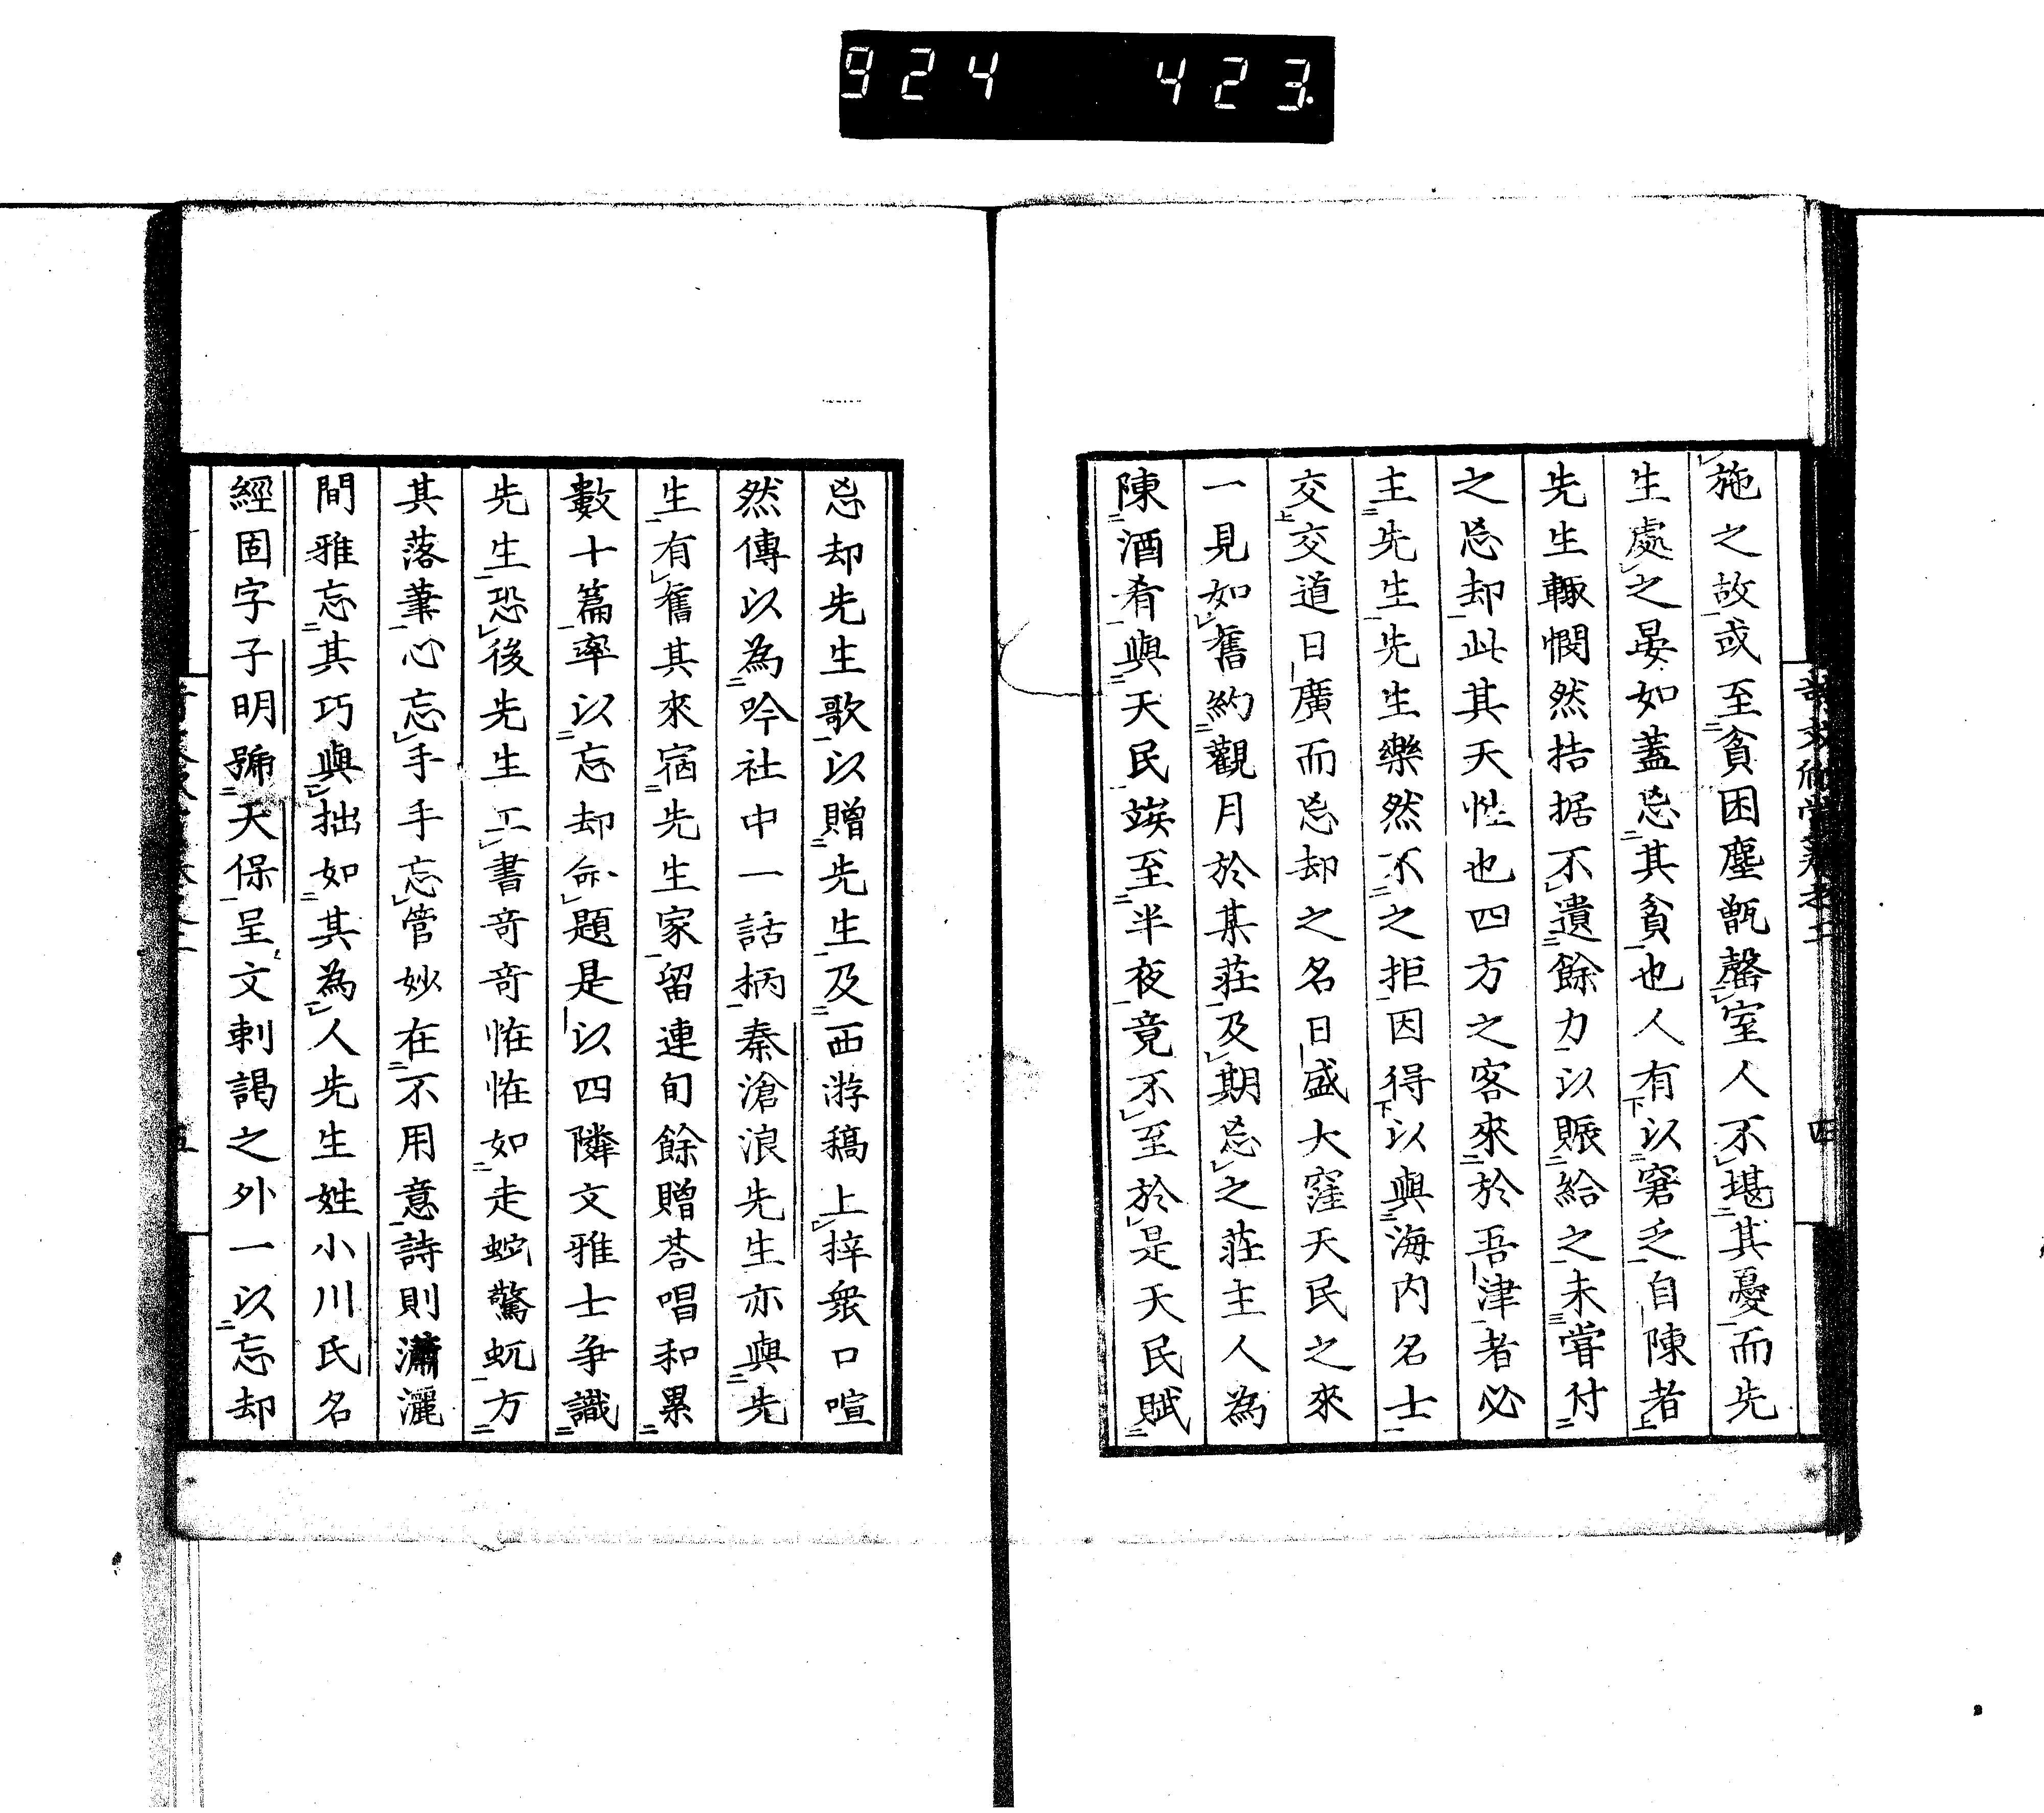 924 423.
施之故或至貧困塵甑罄室人不堪其憂而先
生處之晏如蓋忘其貧也人有以窘乏自陳者
先生輙憫然拮据不遺餘力以賑給之未嘗付
之忘却此其天性也四方之客來於吾津者必
主先生先生樂然不之拒因得以與海内名士
交交道日廣而忘却之名日盛大窪天民之來
一見如舊約觀月於某莊及期忘之莊主人為
陳酒肴與天民竢至半夜竟不至於是天民賦
忘却先生歌以贈先生及西游稿上梓衆口喧
然傳以為吟社中一話柄秦滄浪先生亦與先
生有舊其來宿先生家留連旬餘贈荅唱和累
數十篇率以忘却命題是以四隣文雅士争識
先生恐後先生工書奇奇恠恠如走蛇驚虬方
其落葦心忘手手忘管妙在不用意詩則瀟灑
間雅忘其巧與拙如其為人先生姓小川氏名
經固字子明號天保呈文剌謁之外一以忘却